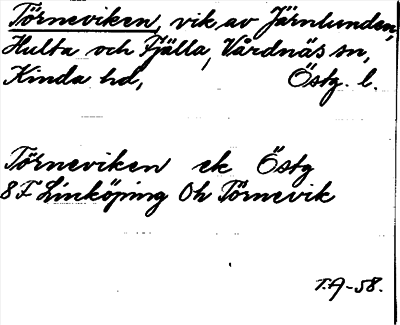 Törneviken, vik av Järnlunden,
Hulta och Fjälla, Vårdnäs sn,
Kinda hd, Östg. l.
Törneviken ek Östg
8F Linköping Oh Törnevik
T.A-58.